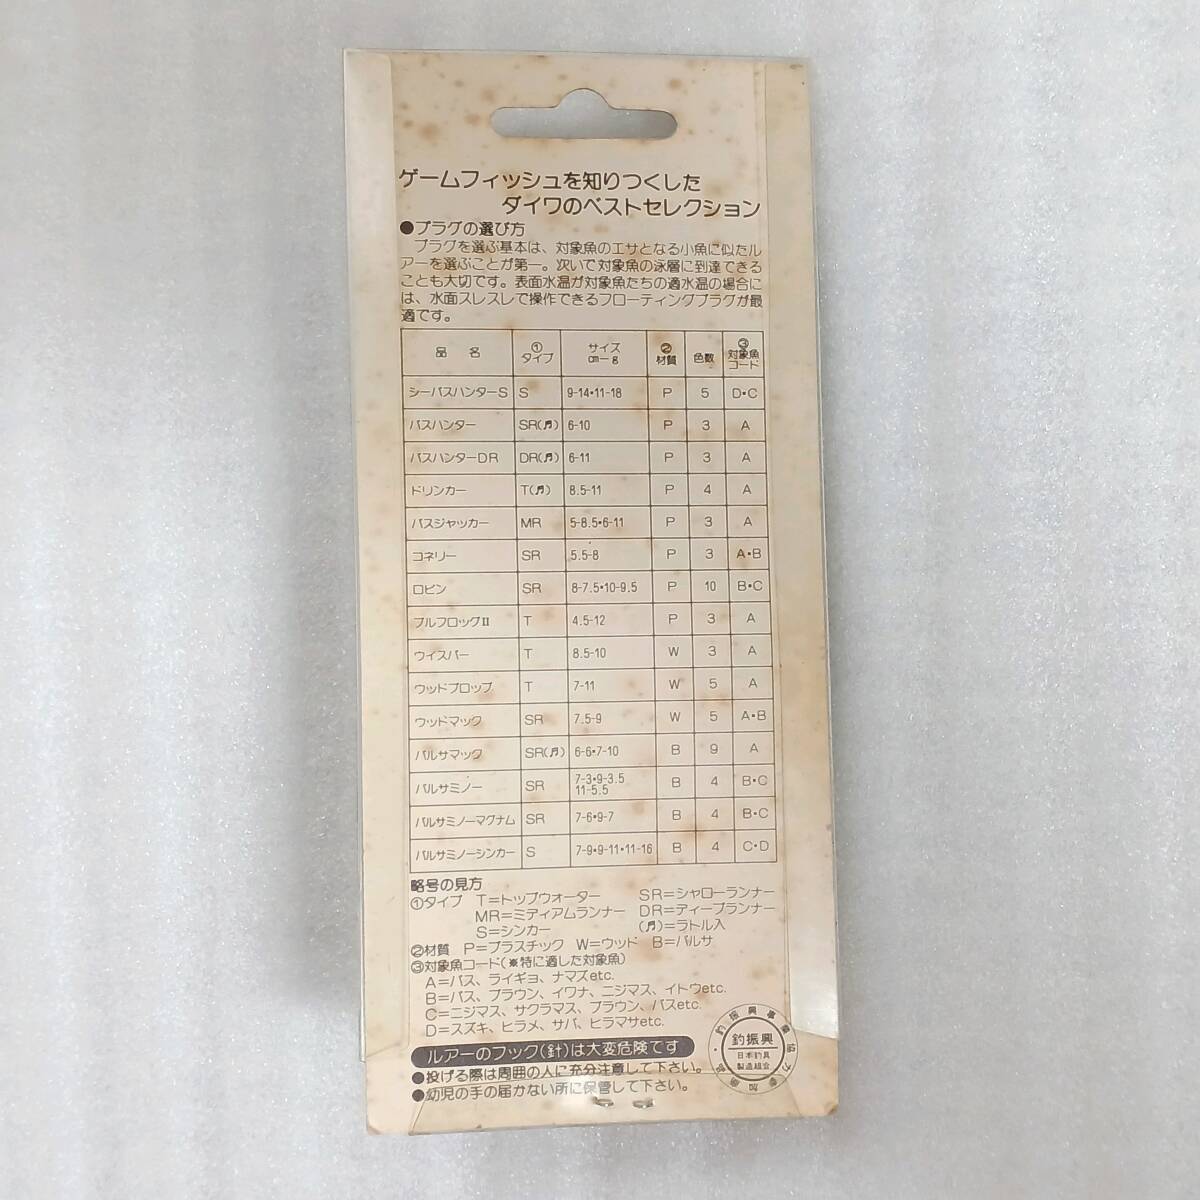 ゲームフィッシュを知りつくした
ダイワのベストセレクション
●プラグの選び方
プラグを選ぶ基本は、対象魚のエサとなる小魚に似たル
アーを選ぶことが第一。次いで対象魚の泳層に到達できる
ことも大切です。表面水温が対象魚たちの適水温の場合に
は、水面スレスレで操作できるフローティングプラグが最
適です。
品名 ①タイプ サイズcm−g ②材質 色数 ③対象魚コード
シーバスハンターS S 9-14•11-18 P 5 D•C
バスハンター SR(♬) 6-10 P 3 A
バスハンターDR DR(♬) 6-11 P 3 A
ドリンカー T(♬) 8.5-11 P 4 A
バスジャッカー MR 5-8.5•6-11 P 3 A
コネリー SR 5.5-8 P 3 A•B
ロビン SR 8-7.5•10-9.5 P 10 B•C
ブルフロッグⅡ T 4.5-12 P 3 A
ウイスパー T 8.5-10 W 3 A
ウッドプロップ T 7-11 W 5 A
ウッドマック SR 7.5-9 W 5 A•B
バルサマック SR(♬) 6-6•7-10 B 9 A
バルサミノー SR 7-3•9-3.5 11-5.5 B 4 B•C
バルサミノーマグナム SR 7-6•9-7 B 4 B•C
バルサミノーシンカー S 7-9•9-11•11-16 B 4 C•D
略号の見方
①タイプ T=トップウォーター SR=シャローランナー
MR=ミディアムランナー DR=ディープランナー
S=シンカー (♬)=ラトル入
②材質 P=プラスチック W=ウッド B=バルサ
③対象魚コード(※特に適した対象魚)
A=バス、ライギョ、ナマズetc.
B=バス、ブラウン、イワナ、ニジマス、イトウetc.
C=ニジマス、サクラマス、ブラウン、バスetc.
D=スズキ、ヒラメ、サバ、ヒラマサetc.
ルアーのフック(針)は大変危険です
●投げる際は周囲の人に充分注意して下さい。
●幼児の手の届かない所に保管して下さい。
釣振興事業協力参加商品
釣振興
日本釣具
製造組合